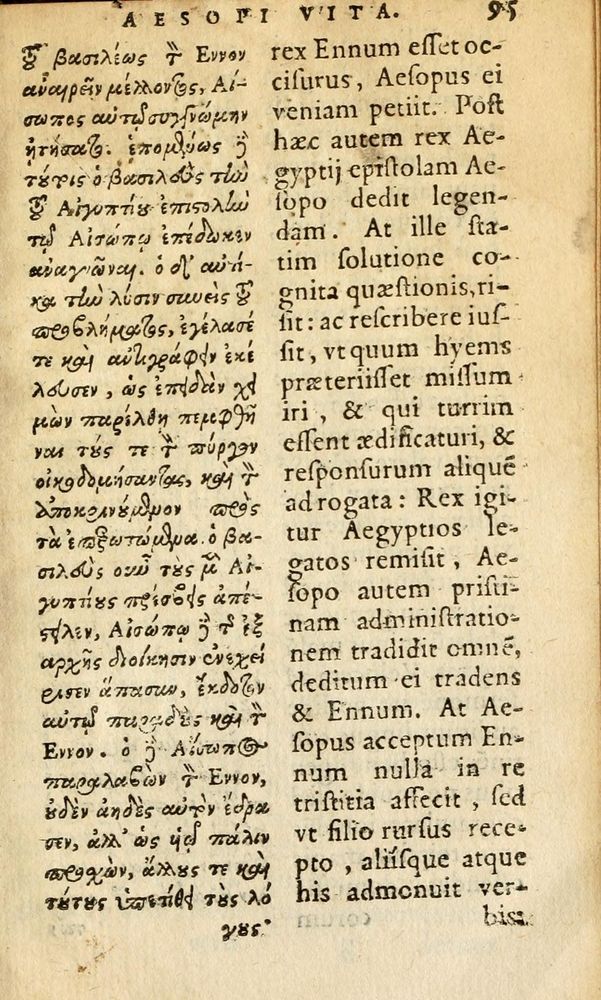 AESOPI VITA. 95
τοῦ βασιλέως τὸν Ἔννον
ἀναιρεῖν μέλλοντος, Αἴ-
σωπος αὐτῷ συγγνώμην
ᾐτήσατο. ἑπομένως δὲ
τούτοις ὁ βασιλεὺς τὴν
τοῦ Αἰγυπτίου ἐπιστολὴν
τῷ Αἰσώπῳ ἐπέδωκεν
ἀναγνῶναι. ὁ δ' αὐτί-
κα τὴν λύσιν συνεὶς τοῦ
προβλήματος, ἐγέλασέ
τε καὶ ἀντιγράφειν ἐκέ
λευσεν, ὡς ἐπειδὰν χει
μὼν παρέλθῃ πεμφθῆ
ναι τούς τε τὸν πύργον
οἰκοδομήσοντας, καὶ τὸν
ἀποκρινούμενον πρὸς
τὰ ἐπερωτώμενα. ὁ βα-
σιλεὺς οὖν τοὺς μὲν Αἰ-
γυπτίους πρέσβεις ἀπέ-
στειλεν, Αἰσώπῳ δὲ τὴν ἐξ
ἀρχῆς διοίκησιν ἐνεχεί
ρισεν ἅπασαν, ἔκδοτον
αὐτῷ παραδοὺς καὶ τὸν
Ἔννον. ὁ δὲ Αἴσωπος
παραλαβὼν τὸν Ἔννον,
οὐδὲν ἀηδὲς αὐτὸν ἔδρα
σεν, ἀλλ' ὡς υἱῷ πάλιν
προσχὼν, ἄλλοις τε καὶ
τούτοις ὑπετίθει τοὺς λό
γους·
rex Ennum esset oc-
cisurus, Aesopus ei
veniam petiit. Post
hæc autem rex Ae-
gyptij epistolam Ae-
sopo dedit legen-
dam. At ille sta-
tim solutione co-
gnita quæstionis, ri-
sit: ac rescribere ius-
sit, vt quum hyems
præteriisset missum
iri, & qui turrim
essent ædificaturi, &
responsurum aliquē
ad rogata: Rex igi-
tur Aegyptios le-
gatos remisit, Ae-
sopo autem pristi-
nam administratio-
nem tradidit omnē,
deditum ei tradens
& Ennum. At Ae-
sopus acceptum En-
num nulla in re
tristitia affecit, sed
vt filio rursus rece-
pto, aliisque atque
his admonuit ver-
bis.